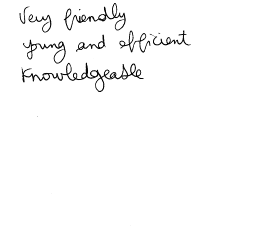 Very friendly
young and efficient
Knowledgeable